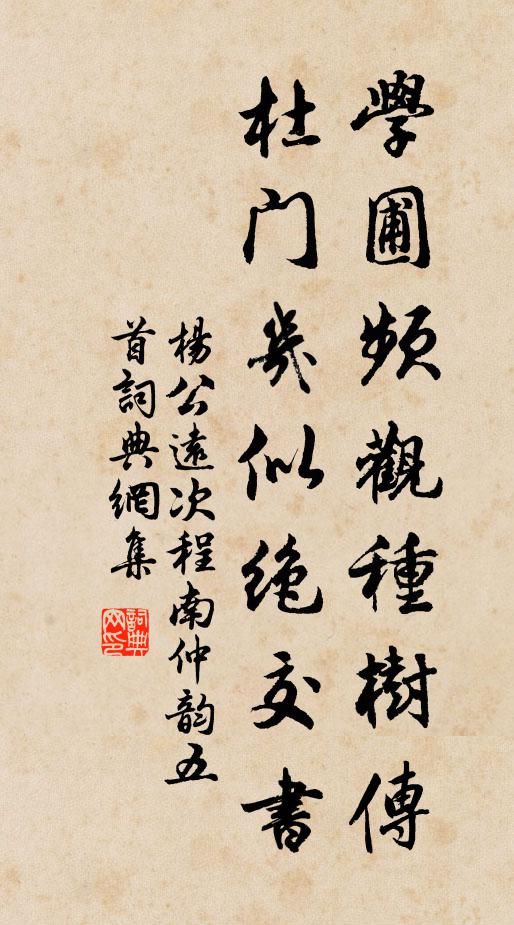 學圃頻觀種樹傳
杜門幾似絕交書
楊公遠次程南仲韵五
首詞典網集
詞典
网印